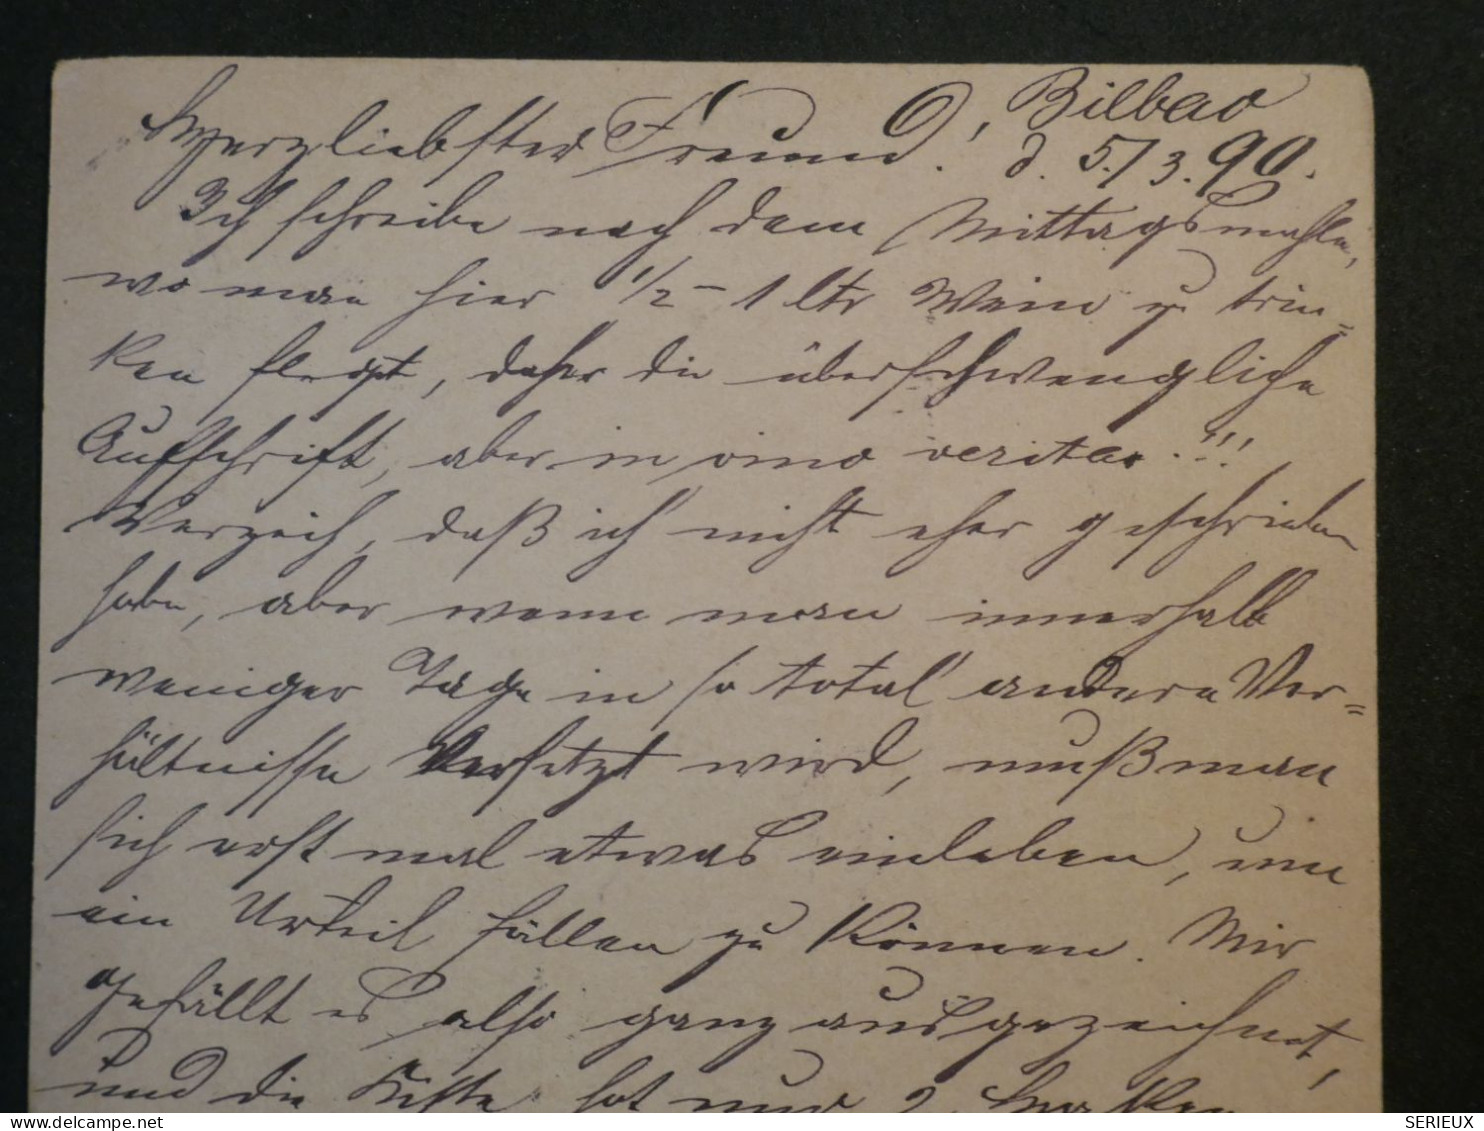 Herzliebster Freund! Bilbao
d. 5./3. 90.
Ich schreibe nach dem Mittagsmahle,
wo man hier 1/2 – 1 ltr Wein zu trin=
ken flegt, daher die überschwengliche
Aufschrift, aber in vino veritas!!!
Verzeih, daß ich nicht eher geschrieben
habe, aber wenn man innerhalb
weniger Tage in so total andere Ver=
hältnisse versetzt wird, muß man
sich erst mal etwas einleben, um
ein Urteil fällen zu können. Mir
gefällt es also ganz ausgezeichnet,
und die Kiste hat nur 2
SERIEUX